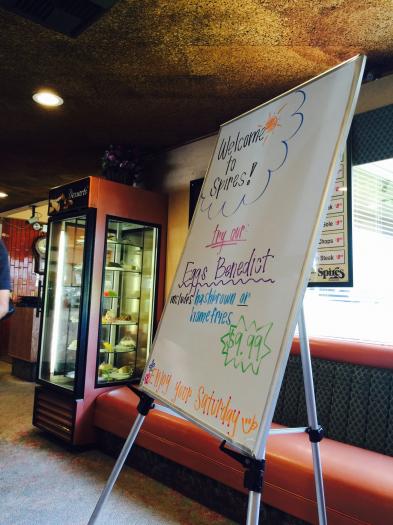 Desserts
Welcome
to
Spires!
try our
Eggs Benedict
includes hashbrown or
homefries
$9.99
Enjoy your Saturday
Sole
Chops
Steak
Spires